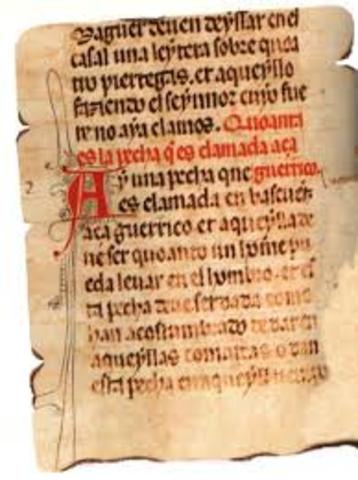 Maguer deuen deyssar en el
casal una leytera sobre quoa
tro pierregas. et aqueyllo
faziendo el seynnor cuyo fue
re no aya clamos. Quoanta
es la pecha q̃ es clamada aça
Ay una pecha que guerrico.
es clamada en bascuenz
aça guerrico et aqueylla de
ue ser quoanto un home pu
eda leuar en el hombro. et es
ta pecha deue ser dada como
han acostumbrado de dar en
aqueyllas comarcas o dan
esta pecha en aqueyll